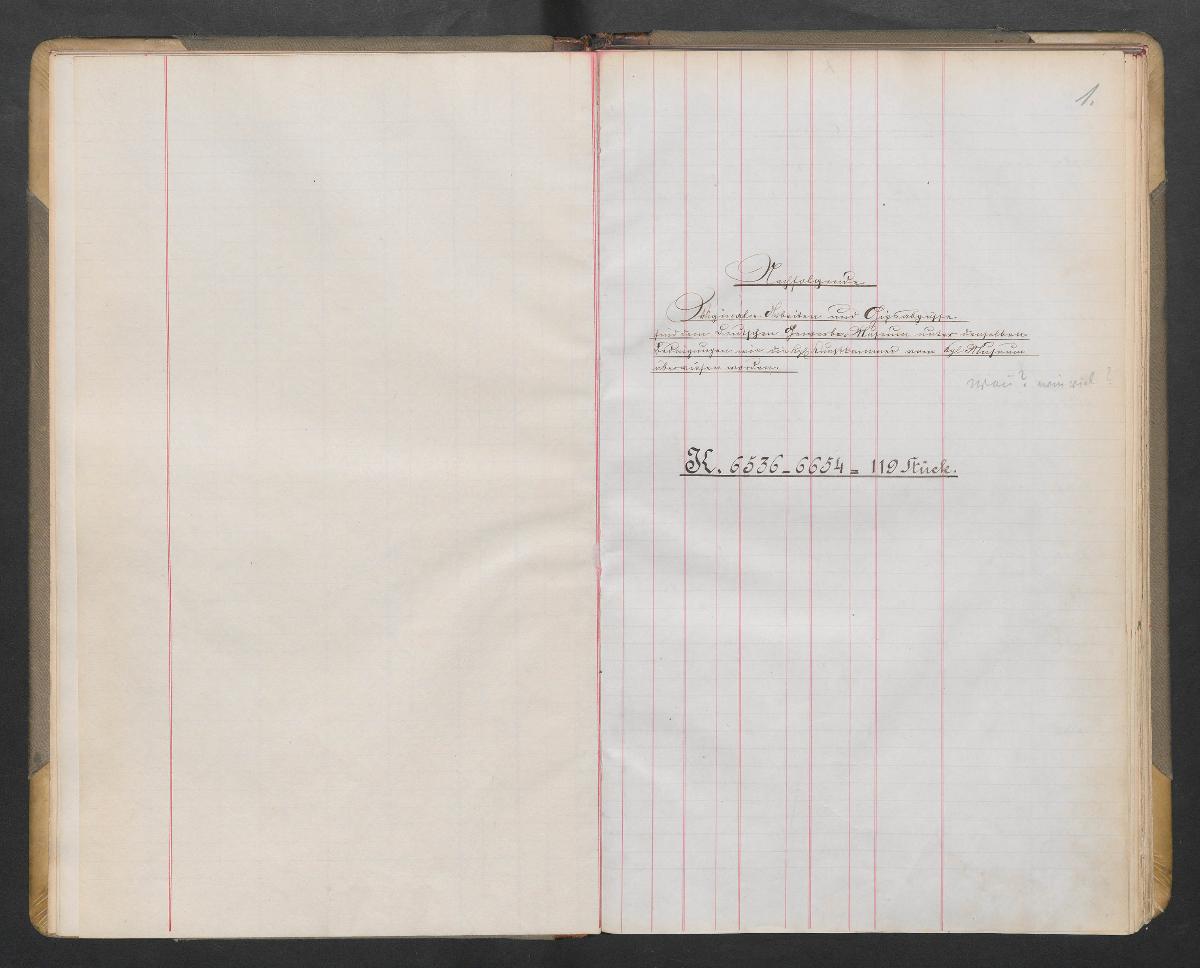 1.
Nachfolgende
Original-Arbeiten und Gipsabgüsse
sind dem Deutschen Gewerbe-Museum unter denselben
Bedingungen wie die Kgl. Kunstkammer vom Kgl. Museum
überwiesen worden.
wieviel?
K. 6536-6654 = 119 Stück.